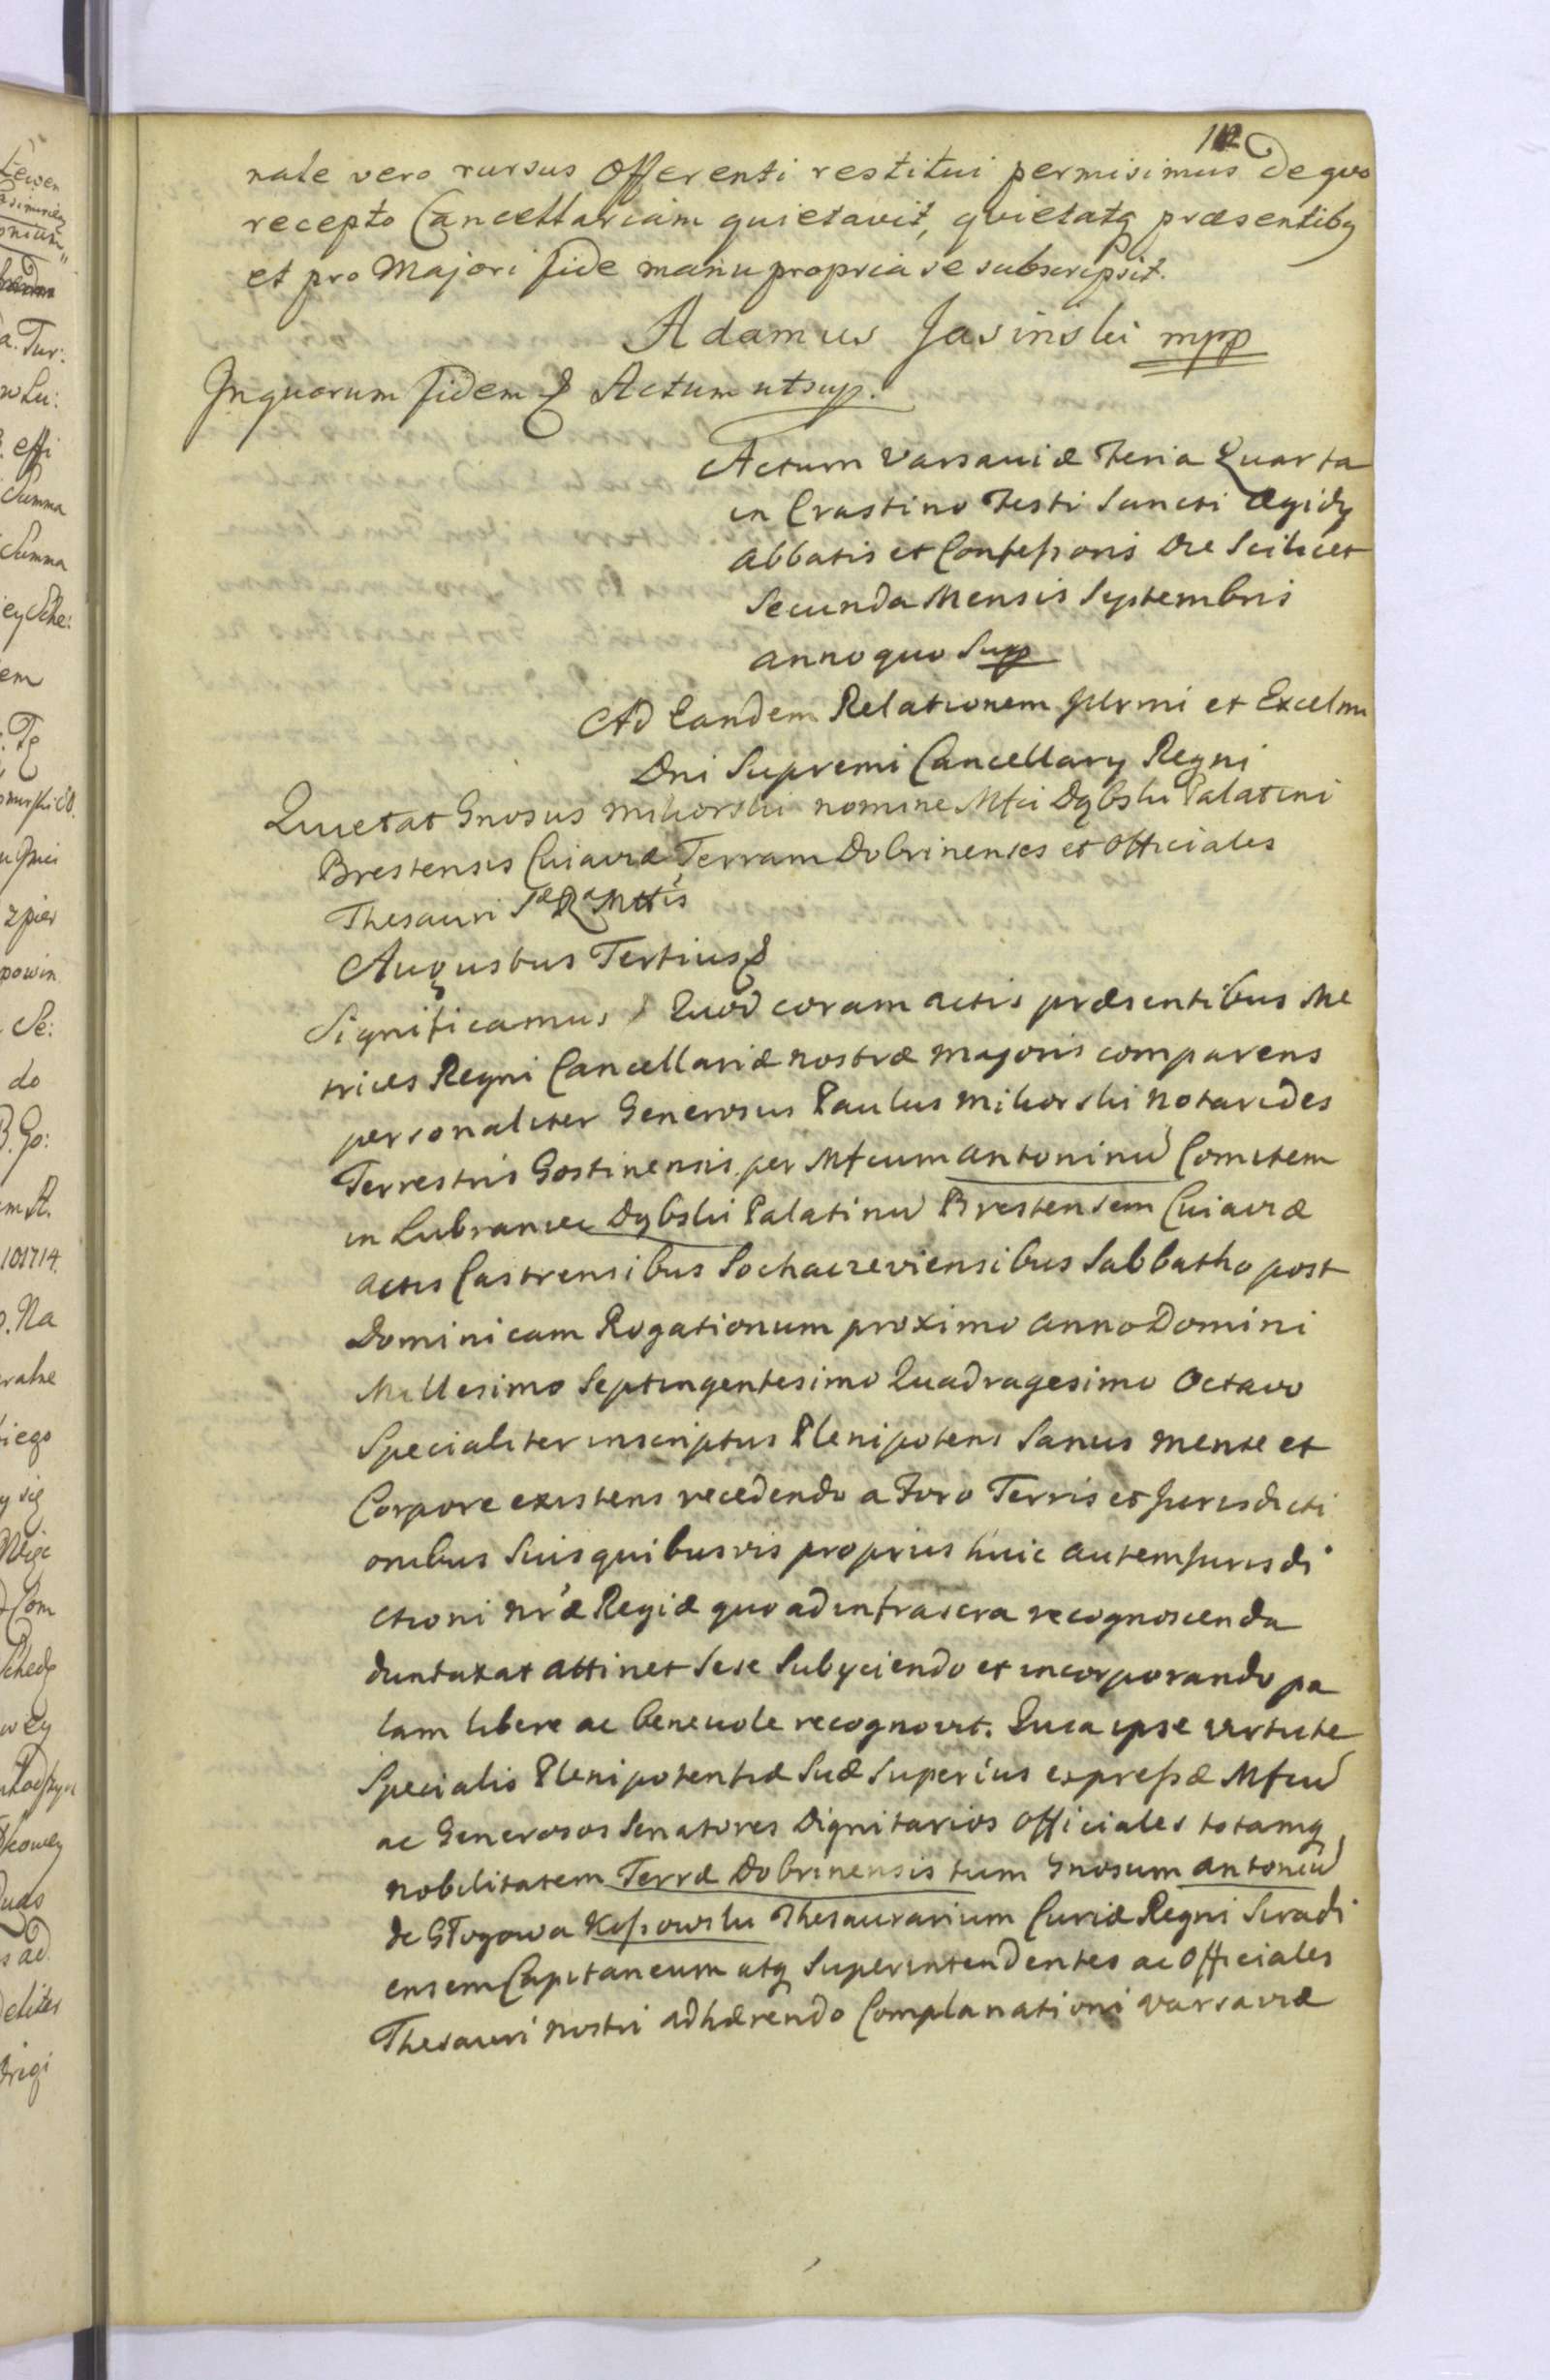 112
nale vero rursus Offerenti restitui permisimus De quo
recepto Cancellariam quietavit, quietatq præsentibq
et pro Majori fide manu propria se subscripsit.
Adamus Jasinski mpp
In quorum fidem & Actum ut sup.
Actum Varsaviæ Feria Quarta
in Crastino Festi Sancti Ægidy
Abbatis et Confeſsoris Die Scilicet
Secunda Mensis Septembris
anno quo Supp
Ad Eandem Relationem Illrmi et Excelmi
Dni Supremi Cancellary Regni
Quietat Gnosus Mikorski nomine Mfci Dąbski Palatini
Brestensis Cuiaviæ Terram Dobrinenses et Officiales
Thesauri Sæ Ræ Mttis
Augustus Tertius &
Significamus & Quod coram actis præsentibus Me
trices Regni Cancellariæ nostræ majoris comparens
personaliter Generosus Paulus Mikorski Notarides
Terrestris Gostinensis per Mfcum Antoninu Comitem
in Lubraniec Dąbski Palatinu Brestensem Cuiaviæ
actis Castrensibus Sochaczeviensibus Sabbatho post
Dominicam Rogationum proximo anno Domini
Millesimo Septingentesimo Quadragesimo Octavo
Specialiter inscriptus Plenipotens Sanus mente et
Corpore existens recedendo a Foro Terris et Jurisdicti
onibus Suis quibusvis proprius huic autem Jurisdi
ctioni nræ Regiæ quo ad infrascra recognoscenda
duntaxat attinet Sese Subyciendo et incorporando pa
lam libere ac benevole recognovit. Quia ipse virtute
Specialis Plenipotentiæ Suæ Superius expreſsæ Mfcu
ac Generosos Senatores Dignitarios Officiales totamq
nobilitatem Terræ Dobrinensis tum Gnosum Antoniu
de Głogowa Koſsowski Thesaurarium Curiæ Regni Siradi
ensem Capitaneum atq Superintendentes ac Officiales
Thesauri nostri adhærendo Complanationi Varsaviæ